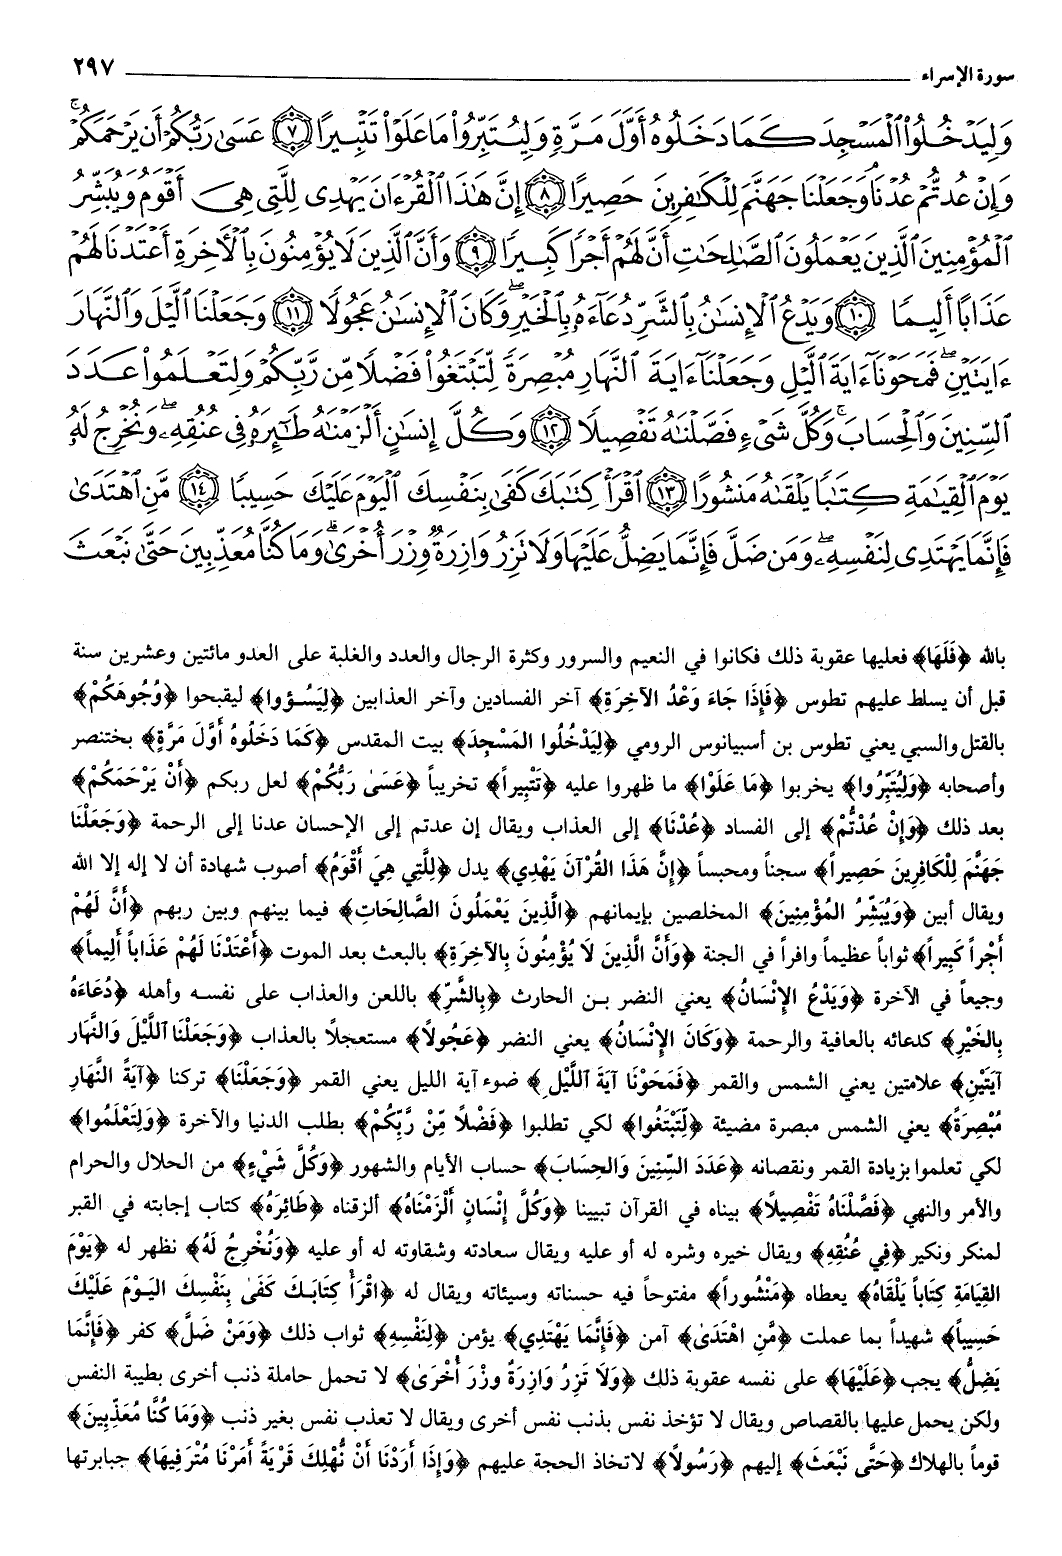 سورة الإسراء ٢٩٧
وَلِيَدْخُلُوا۟ ٱلْمَسْجِدَ كَمَا دَخَلُوهُ أَوَّلَ مَرَّةٍ وَلِيُتَبِّرُوا۟ مَا عَلَوْا۟ تَتْبِيرًا ٧ عَسَىٰ رَبُّكُمْ أَن يَرْحَمَكُمْ ۚ
وَإِنْ عُدتُّمْ عُدْنَا ۘ وَجَعَلْنَا جَهَنَّمَ لِلْكَـٰفِرِينَ حَصِيرًا ٨ إِنَّ هَـٰذَا ٱلْقُرْءَانَ يَهْدِى لِلَّتِى هِىَ أَقْوَمُ وَيُبَشِّرُ
ٱلْمُؤْمِنِينَ ٱلَّذِينَ يَعْمَلُونَ ٱلصَّـٰلِحَـٰتِ أَنَّ لَهُمْ أَجْرًا كَبِيرًا ٩ وَأَنَّ ٱلَّذِينَ لَا يُؤْمِنُونَ بِٱلْـَٔاخِرَةِ أَعْتَدْنَا لَهُمْ
عَذَابًا أَلِيمًا ١٠ وَيَدْعُ ٱلْإِنسَـٰنُ بِٱلشَّرِّ دُعَآءَهُۥ بِٱلْخَيْرِ ۖ وَكَانَ ٱلْإِنسَـٰنُ عَجُولًا ١١ وَجَعَلْنَا ٱلَّيْلَ وَٱلنَّهَارَ
ءَايَتَيْنِ ۖ فَمَحَوْنَآ ءَايَةَ ٱلَّيْلِ وَجَعَلْنَآ ءَايَةَ ٱلنَّهَارِ مُبْصِرَةً لِّتَبْتَغُوا۟ فَضْلًا مِّن رَّبِّكُمْ وَلِتَعْلَمُوا۟ عَدَدَ
ٱلسِّنِينَ وَٱلْحِسَابَ ۚ وَكُلَّ شَىْءٍ فَصَّلْنَـٰهُ تَفْصِيلًا ١٢ وَكُلَّ إِنسَـٰنٍ أَلْزَمْنَـٰهُ طَـٰٓئِرَهُۥ فِى عُنُقِهِۦ ۖ وَنُخْرِجُ لَهُۥ
يَوْمَ ٱلْقِيَـٰمَةِ كِتَـٰبًا يَلْقَىٰهُ مَنشُورًا ١٣ ٱقْرَأْ كِتَـٰبَكَ كَفَىٰ بِنَفْسِكَ ٱلْيَوْمَ عَلَيْكَ حَسِيبًا ١٤ مَّنِ ٱهْتَدَىٰ
فَإِنَّمَا يَهْتَدِى لِنَفْسِهِۦ ۖ وَمَن ضَلَّ فَإِنَّمَا يَضِلُّ عَلَيْهَا ۚ وَلَا تَزِرُ وَازِرَةٌ وِزْرَ أُخْرَىٰ ۗ وَمَا كُنَّا مُعَذِّبِينَ حَتَّىٰ نَبْعَثَ
بالله ﴿فَلَهَا﴾ فعليها عقوبة ذلك فكانوا في النعيم والسرور وكثرة الرجال والعدد والغلبة على العدو مائتين وعشرين سنة
قبل أن يسلط عليهم تطوس ﴿فَإِذَا جَاءَ وَعْدُ الآخِرَةِ﴾ آخر الفسادين وآخر العذابين ﴿لِيَسُـؤوا﴾ ليقبحوا ﴿وُجُوهَكُمْ﴾
بالقتل والسبي يعني تطوس بن أسبيانوس الرومي ﴿لِيَدْخُلُوا المَسْجِدَ﴾ بيت المقدس ﴿كَمَا دَخَلُوهُ أَوَّلَ مَرَّةٍ﴾ بختنصر
وأصحابه ﴿وَلِيُتَبِّرُوا﴾ يخربوا ﴿مَا عَلَوْا﴾ ما ظهروا عليه ﴿تَتْبِيراً﴾ تخريباً ﴿عَسَىٰ رَبُّكُمْ﴾ لعل ربكم ﴿أَنْ يَرْحَمَكُمْ﴾
بعد ذلك ﴿وَإِنْ عُدْتُّمْ﴾ إلى الفساد ﴿عُدْنَا﴾ إلى العذاب ويقال إن عدتم إلى الإحسان عدنا إلى الرحمة ﴿وَجَعَلْنَا
جَهَنَّمَ لِلْكَافِرِينَ حَصِيراً﴾ سجناً ومحبساً ﴿إِنَّ هَذَا القُرْآنَ يَهْدِي﴾ يدل ﴿لِلَّتِي هِيَ أَقْوَمُ﴾ أصوب شهادة أن لا إله إلا الله
ويقال أبين ﴿وَيُبَشِّرُ المُؤْمِنِينَ﴾ المخلصين بإيمانهم ﴿الَّذِينَ يَعْمَلُونَ الصَّالِحَاتِ﴾ فيما بينهم وبين ربهم ﴿أَنَّ لَهُمْ
أَجْراً كَبِيراً﴾ ثواباً عظيماً وافراً في الجنة ﴿وَأَنَّ الَّذِينَ لَا يُؤْمِنُونَ بِالآخِرَةِ﴾ بالبعث بعد الموت ﴿أَعْتَدْنَا لَهُمْ عَذَاباً أَلِيماً﴾
وجيعاً في الآخرة ﴿وَيَدْعُ الإِنْسَانُ﴾ يعني النضر بـن الحارث ﴿بِالشَّرِّ﴾ باللعن والعذاب على نفسـه وأهله ﴿دُعَاءَهُ
بِالخَيْرِ﴾ كدعائه بالعافية والرحمة ﴿وَكَانَ الإِنْسَانُ﴾ يعني النضر ﴿عَجُولاً﴾ مستعجلاً بالعذاب ﴿وَجَعَلْنَا اللَّيْلَ وَالنَّهَارَ
آيَتَيْنِ﴾ علامتين يعني الشمس والقمر ﴿فَمَحَوْنَا آيَةَ اللَّيْلِ﴾ ضوء آية الليل يعني القمر ﴿وَجَعَلْنَا﴾ تركنا ﴿آيَةَ النَّهَارِ
مُبْصِرَةً﴾ يعني الشمس مبصرة مضيئة ﴿لِتَبْتَغُوا﴾ لكي تطلبوا ﴿فَضْلاً مِّنْ رَّبِّكُمْ﴾ بطلب الدنيا والآخرة ﴿وَلِتَعْلَمُوا﴾
لكي تعلموا بزيادة القمر ونقصانه ﴿عَدَدَ السِّنِينَ وَالحِسَابَ﴾ حساب الأيام والشهور ﴿وَكُلَّ شَيْءٍ﴾ من الحلال والحرام
والأمر والنهي ﴿فَصَّلْنَاهُ تَفْصِيلاً﴾ بيناه في القرآن تبيينا ﴿وَكُلَّ إِنْسَانٍ أَلْزَمْنَاهُ﴾ ألزقناه ﴿طَائِرَهُ﴾ كتاب إجابته في القبر
لمنكر ونكير ﴿فِي عُنُقِهِ﴾ ويقال خيره وشره له أو عليه ويقال سعادته وشقاوته له أو عليه ﴿وَنُخْرِجُ لَهُ﴾ نظهر له ﴿يَوْمَ
القِيَامَةِ كِتَاباً يَلْقَاهُ﴾ يعطاه ﴿مَنْشُوراً﴾ مفتوحاً فيه حسناته وسيئاته ويقال له ﴿اقْرَأْ كِتَابَـكَ كَفَىٰ بِنَفْسِكَ اليَوْمَ عَلَيْكَ
حَسِيباً﴾ شهيداً بما عملت ﴿مَّنِ اهْتَدَىٰ﴾ آمن ﴿فَإِنَّمَا يَهْتَدِي﴾ يؤمن ﴿لِنَفْسِهِ﴾ ثواب ذلك ﴿وَمَنْ ضَلَّ﴾ كفر ﴿فَإِنَّمَا
يَضِلُّ﴾ يجب ﴿عَلَيْهَا﴾ على نفسه عقوبة ذلك ﴿وَلَا تَزِرُ وَازِرَةٌ وِزْرَ أُخْرَىٰ﴾ لا تحمل حاملة ذنب أخرى بطيبة النفس
ولكن يحمل عليها بالقصاص ويقال لا تؤخذ نفس بذنب نفس أخرى ويقال لا تعذب نفس بغير ذنب ﴿وَمَا كُنَّا مُعَذِّبِينَ﴾
قوماً بالهلاك ﴿حَتَّى نَبْعَثَ﴾ إليهم ﴿رَسُولاً﴾ لاتخاذ الحجة عليهم ﴿وَإِذَا أَرَدْنَا أَنْ نُّهْلِكَ قَرْيَةً أَمَرْنَا مُتْرَفِيهَا﴾ جبابرتها